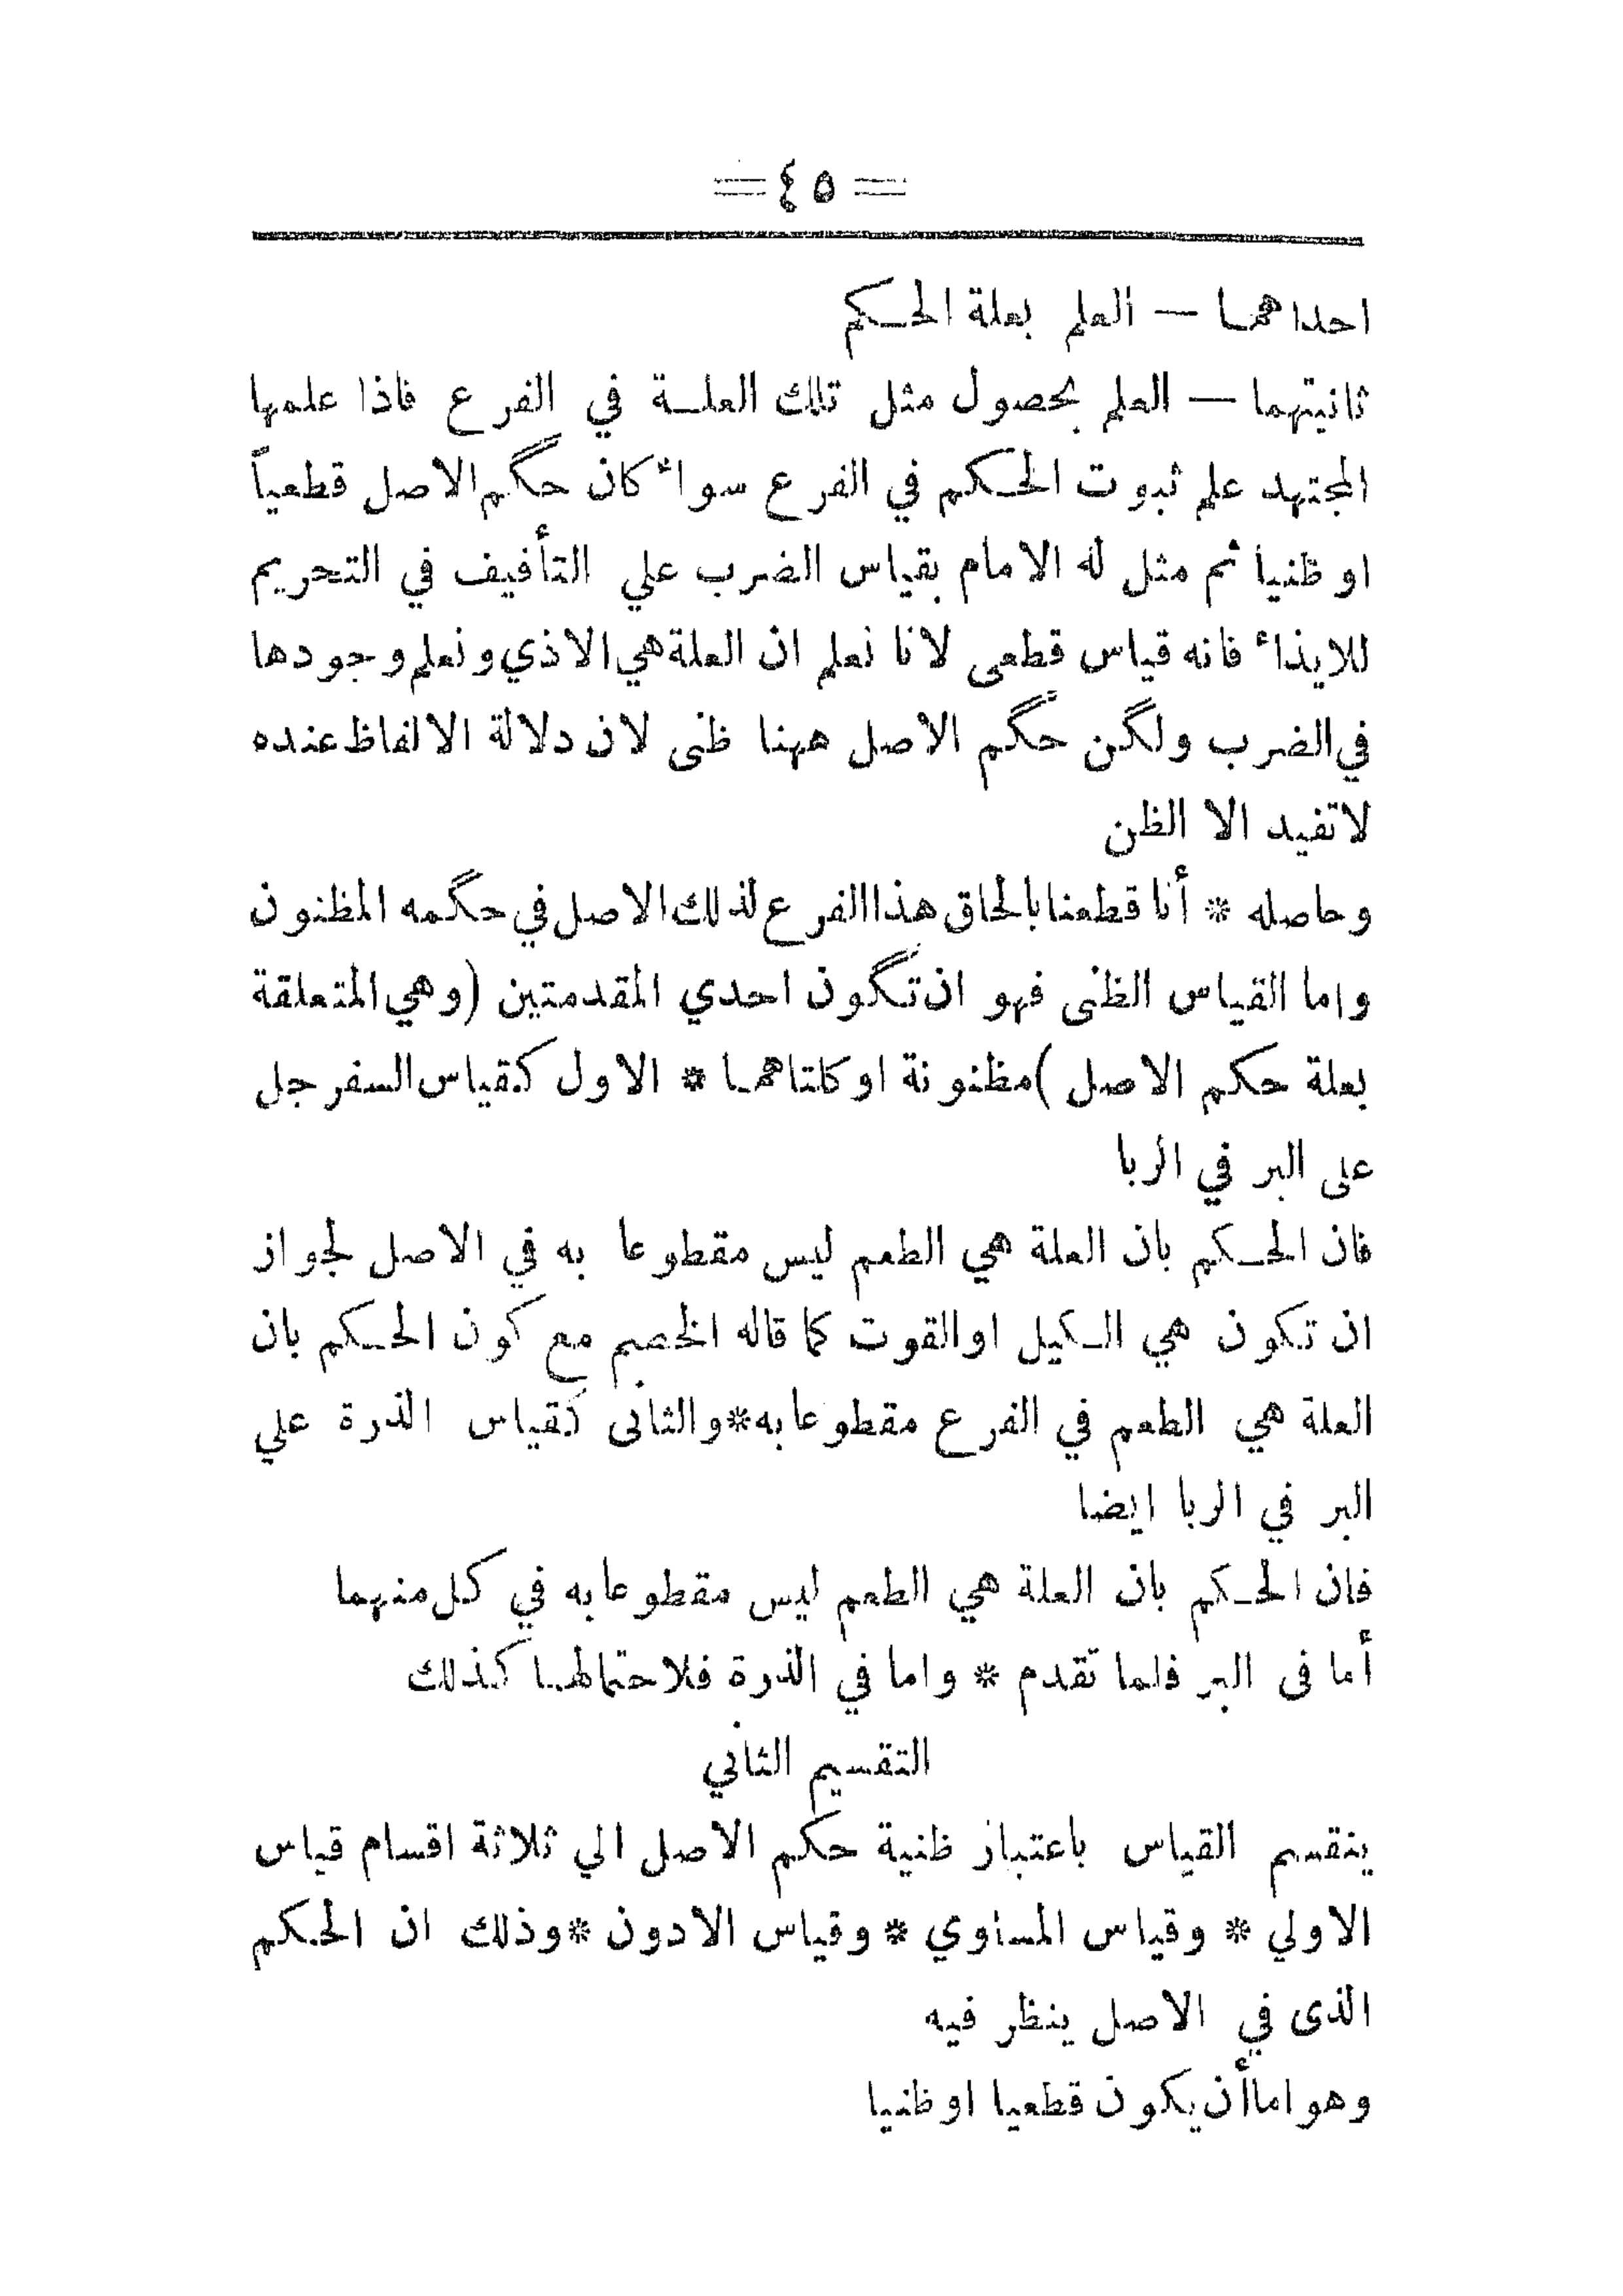 = ٤٥ =
احداهما — العلم بعلة الحكم
ثانيتهما — العلم بحصول مثل تلك العلة في الفرع فاذا علمها
المجتهد علم ثبوت الحكم في الفرع سواء كان حكم الاصل قطعياً
او ظنياً ثم مثل له الامام بقياس الضرب علي التأفيف في التحريم
للايذاء فانه قياس قطعى لانا نعلم ان العلة هي الاذي ونعلم وجودها
في الضرب ولكن حكم الاصل ههنا ظنى لان دلالة الالفاظ عنده
لاتفيد الا الظن
وحاصله * أنا قطعنا بالحاق هذا الفرع لذلك الاصل في حكمه المظنون
واما القياس الظنى فهو ان تكون احدي المقدمتين (وهي المتعلقة
بعلة حكم الاصل) مظنونة او كلتاهما * الاول كقياس السفرجل
على البر في الربا
فان الحكم بان العلة هي الطعم ليس مقطوعا به في الاصل لجواز
ان تكون هي الكيل او القوت كما قاله الخصم مع كون الحكم بان
العلة هي الطعم في الفرع مقطوعا به * والثانى كقياس الذرة علي
البر في الربا ايضا
فان الحكم بان العلة هي الطعم ليس مقطوعا به في كل منهما
أما فى البر فلما تقدم * واما في الذرة فلاحتمالها كذلك
التقسيم الثاني
ينقسم القياس باعتبار ظنية حكم الاصل الي ثلاثة اقسام قياس
الاولي * وقياس المساوي * وقياس الادون * وذلك ان الحكم
الذى في الاصل ينظر فيه
وهو اما أن يكون قطعيا او ظنيا